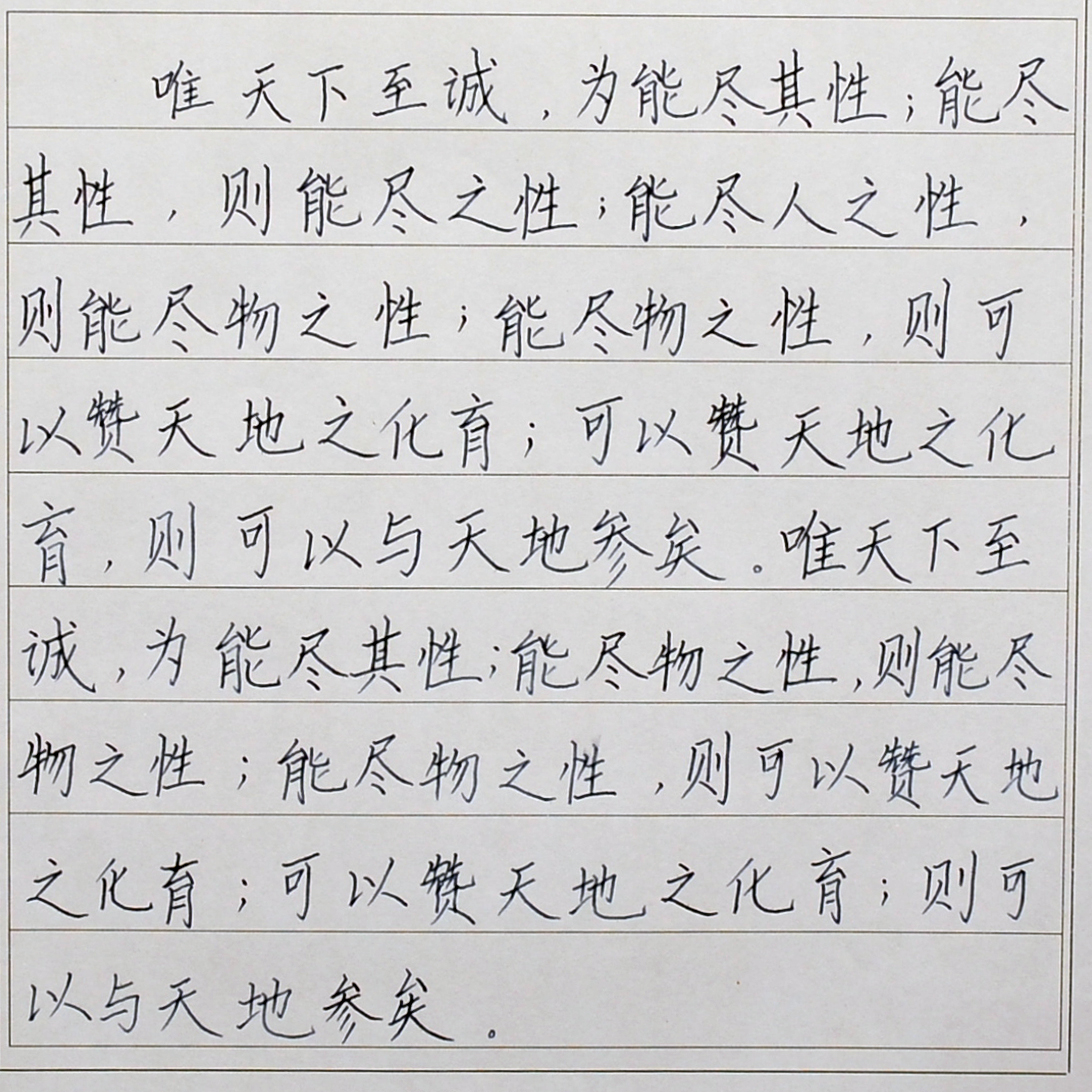 唯天下至诚，为能尽其性；能尽
其性，则能尽之性；能尽人之性，
则能尽物之性；能尽物之性，则可
以赞天地之化育；可以赞天地之化
育，则可以与天地参矣。唯天下至
诚，为能尽其性；能尽物之性，则能尽
物之性；能尽物之性，则可以赞天地
之化育；可以赞天地之化育；则可
以与天地参矣。